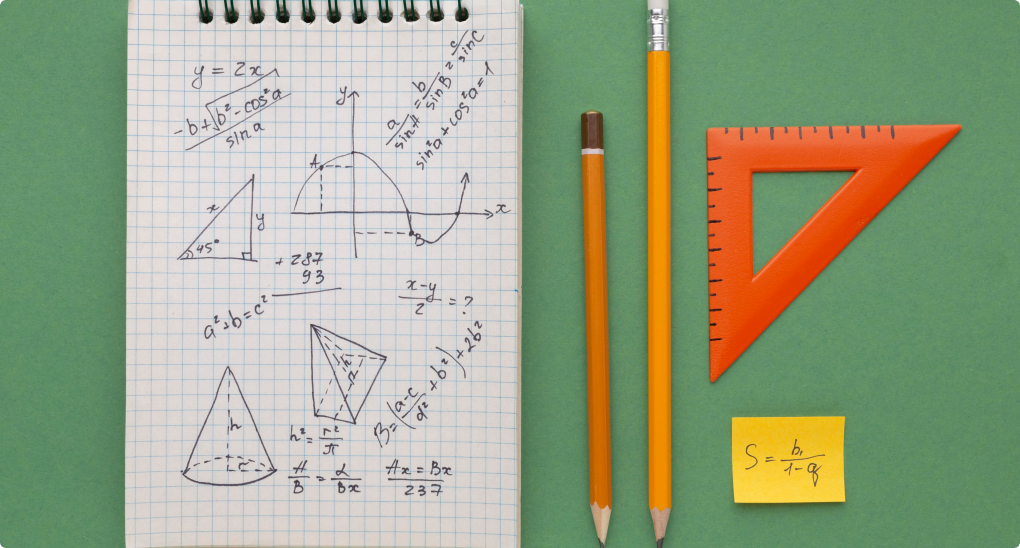 y = 2x
-b+√b²-cos²a
sin a
a/sin A = b/sin B = c/sin C
sin²a + cos²a = 1
y
A
x
B
x
y
45°
+ 287
93
x-y/2 = ?
a²+b=c²
h
r
B=(a-c/d²+b²)+2b²
h² = r²/π
A/B = L/Bx
Ax = Bx
237
S = b₁/1-q